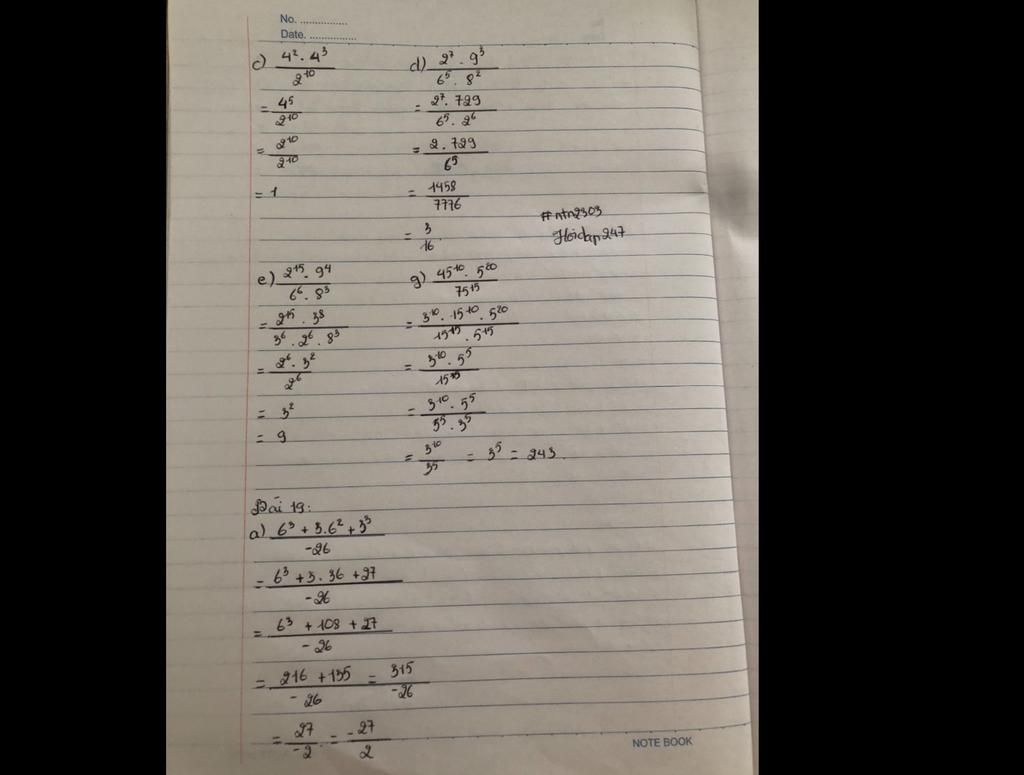 No. ................
Date. ................
c) 4² . 4³ / 2¹⁰
= 4⁵ / 2¹⁰
= 2¹⁰ / 2¹⁰
= 1
d) 2⁷ . 9³ / 6⁵ . 8²
= 2⁷ . 729 / 6⁵ . 2⁶
= 2 . 729 / 6⁵
= 1458 / 7776
= 3 / 16
#ntn2303
Hoidap247
e) 2¹⁵ . 9⁴ / 6⁶ . 8³
= 2¹⁵ . 3⁸ / 3⁶ . 2⁶ . 8³
= 2⁶ . 3² / 2⁶
= 3²
= 9
g) 45¹⁰ . 5²⁰ / 75¹⁵
= 3¹⁰ . 15¹⁰ . 5²⁰ / 15¹⁵ . 5¹⁵
= 3¹⁰ . 5⁵ / 15¹⁵
= 3¹⁰ . 5⁵ / 5⁵ . 3⁵
= 3¹⁰ / 3⁵ = 3⁵ = 243.
Bài 19:
a) 6³ + 3.6² + 3³ / -26
= 6³ + 3. 36 + 27 / -26
= 6³ + 108 + 27 / -26
= 216 + 135 / -26 = 315 / -26
= 27 / -2 = -27 / 2
NOTE BOOK